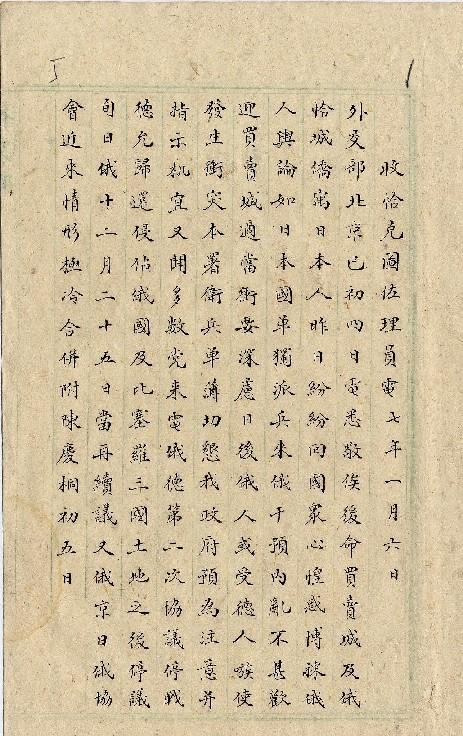 收恰克圖佐理員電七年一月六日
外交部北京已初四日電悉敬俟後命買賣城及俄
恰城僑寓日本人昨日紛紛回國眾心惶惑博採俄
人輿論如日本國單獨派兵來俄干預內亂不甚歡
迎買賣城適當衝要深慮日後俄人或受德人嗾使
發生衝突本署衛兵單薄切懇我政府預為注意并
指示机宜又聞多數党來電俄德第二次協議停戰
德允歸還侵佔俄國及比塞羅三國土地之後停議
旬日俄十二月二十五日當再續議又俄京日俄協
會近來情形極冷合併附陳慶桐初五日